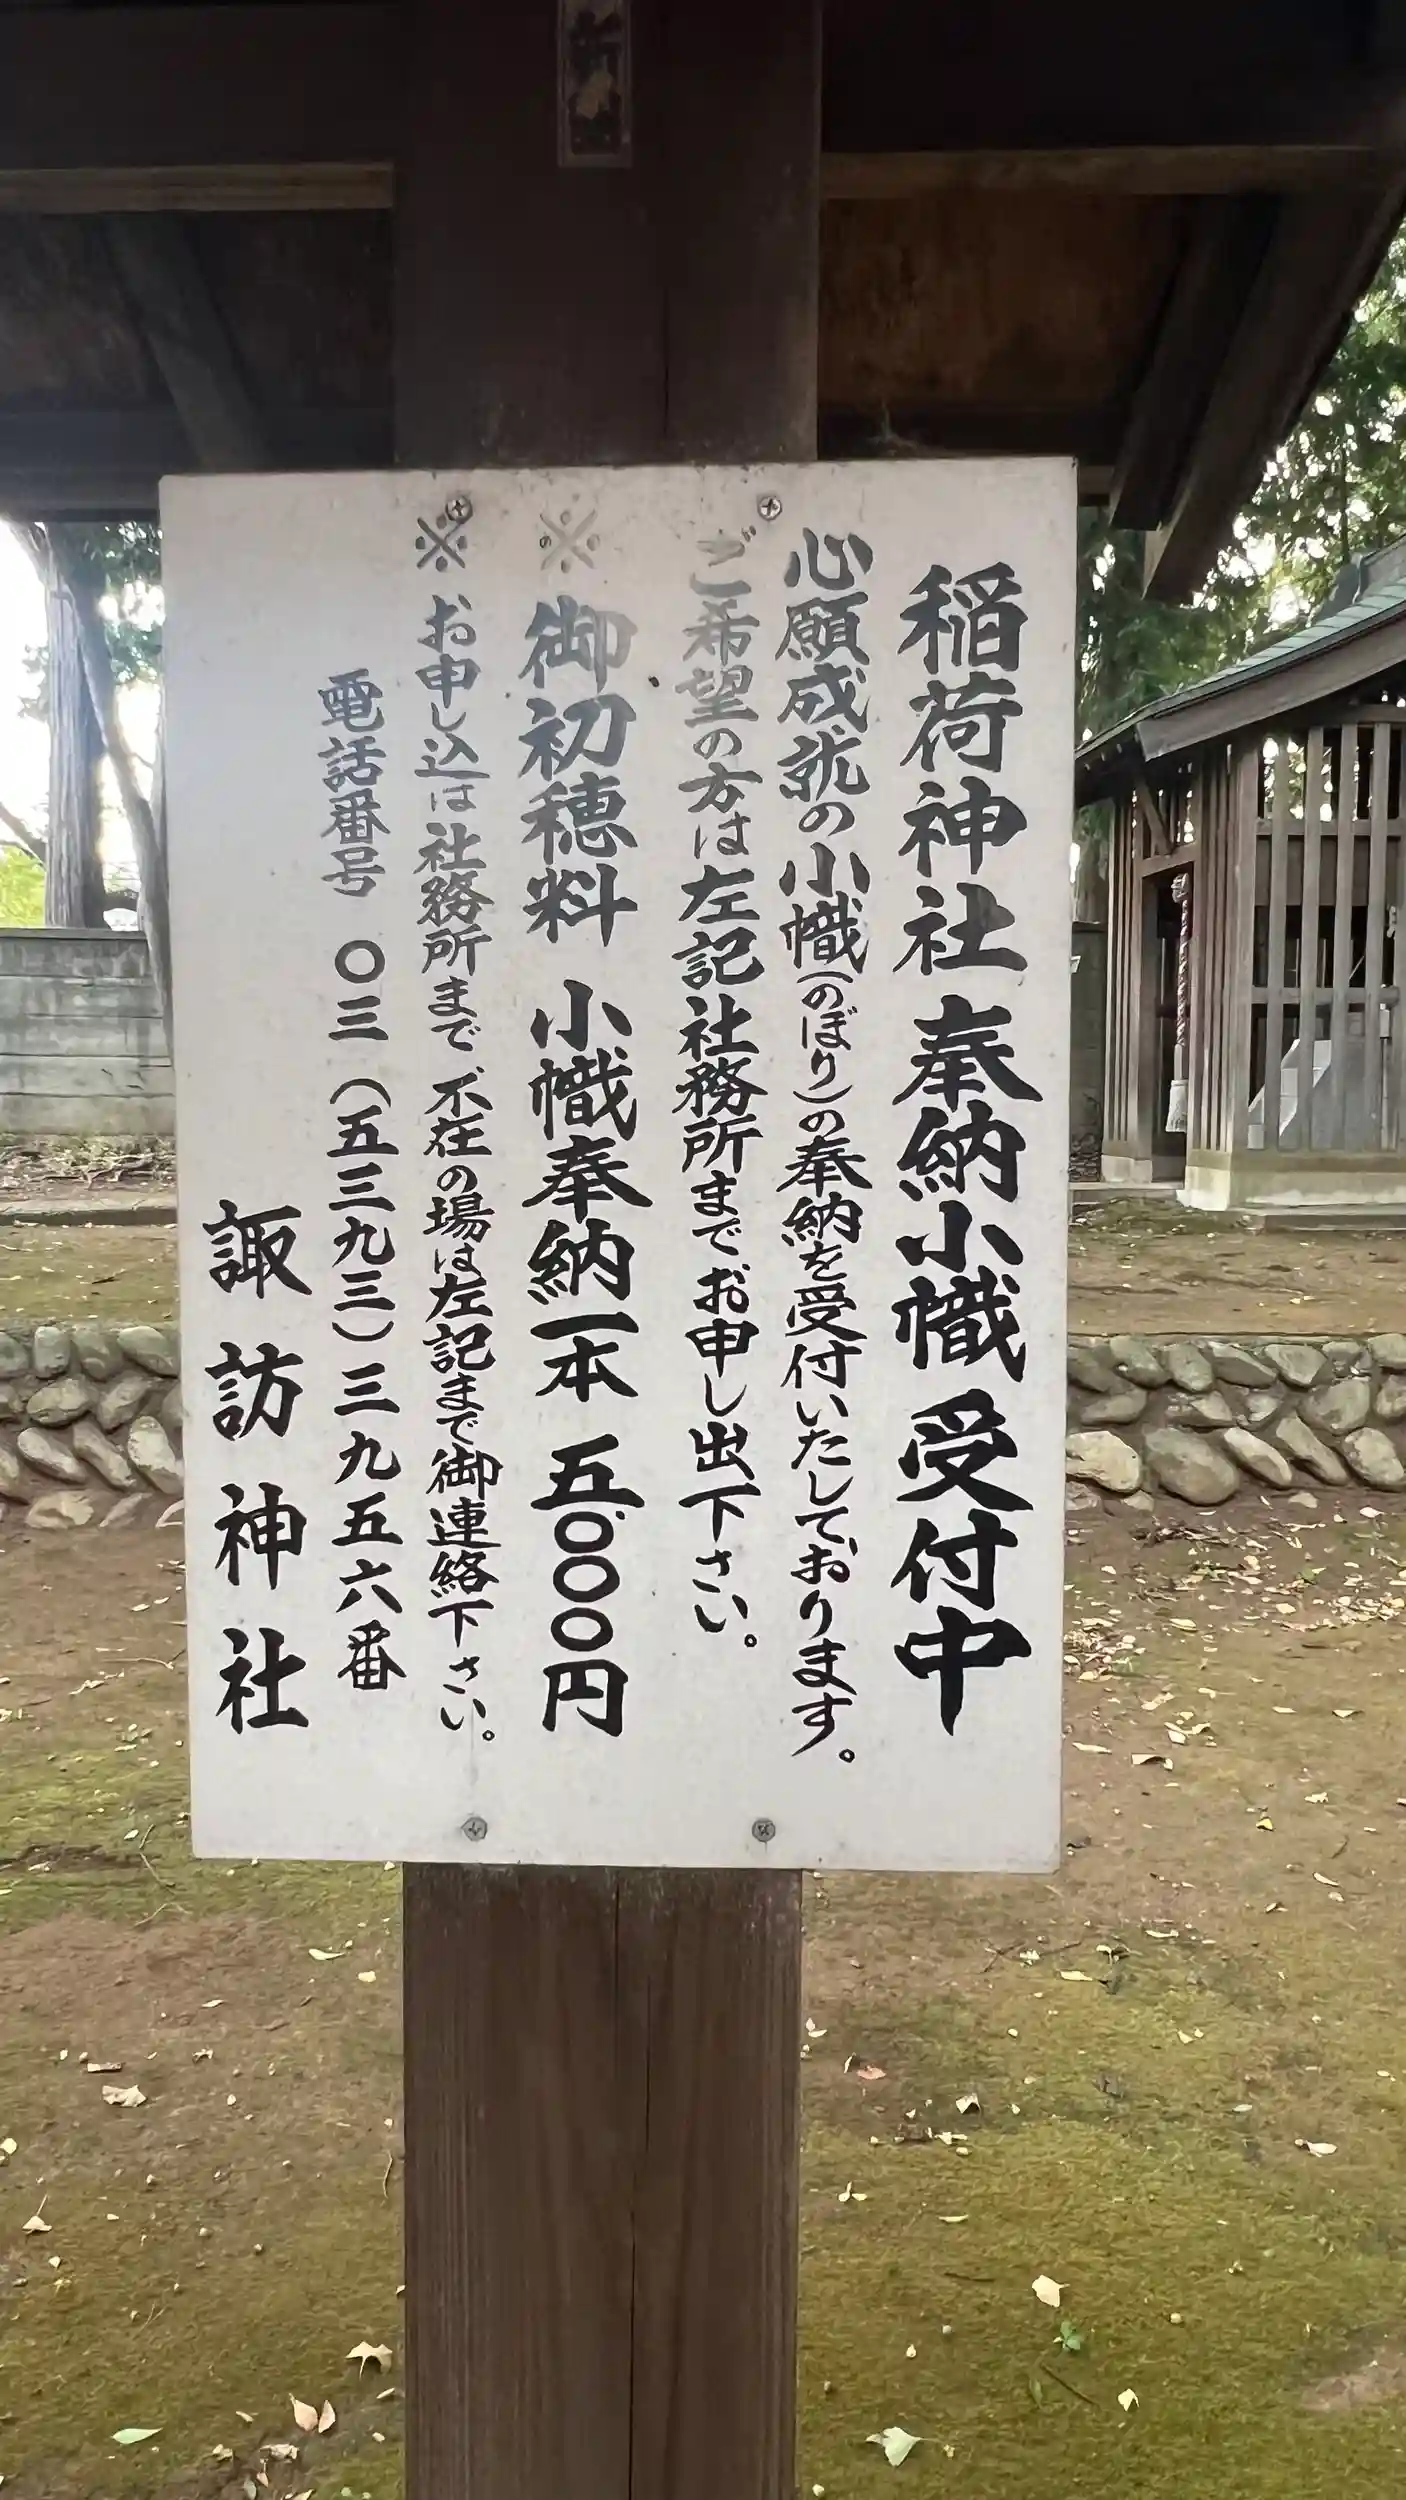 稲荷神社 奉納小幟 受付中
心願成就の小幟(のぼり)の奉納を受付いたしております。
ご希望の方は左記社務所までお申し出下さい。
※ 御初穂料 小幟奉納一本 五、〇〇〇円
※ お申し込は社務所まで、不在の場は左記まで御連絡下さい。
電話番号 〇三(五三九三)三九五六番
諏訪神社